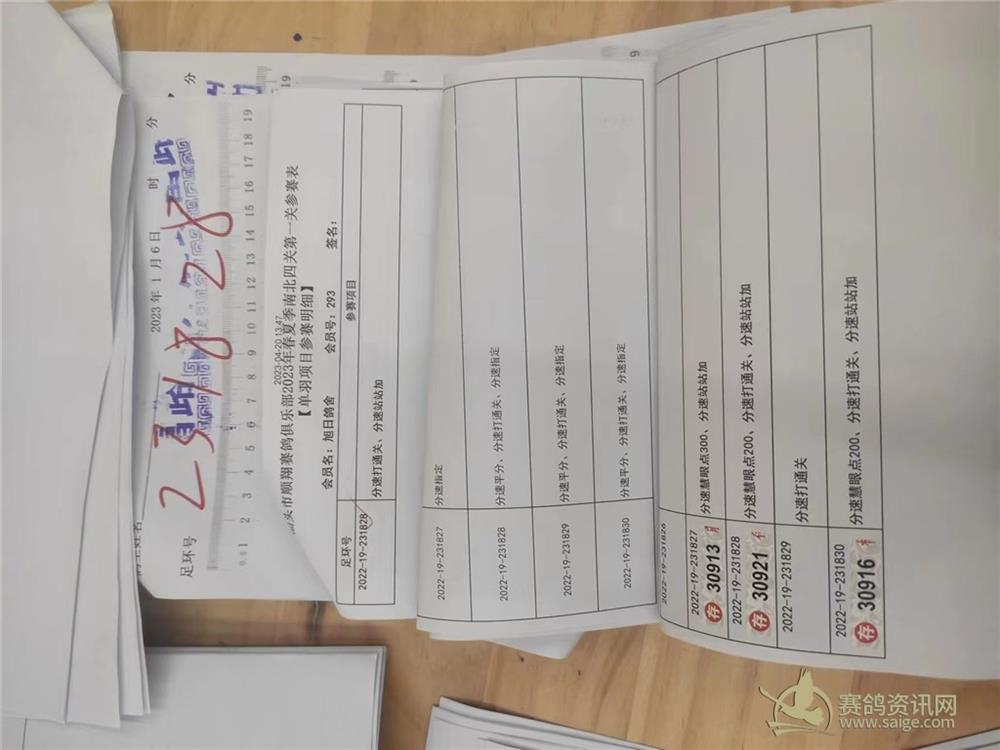 足环号
2023年1月6日 时 分
231828
2023-04-20 13:47
头市顺翔赛鸽俱乐部2023年春夏季南北四关第一关参赛表
【单羽项目参赛明细】
会员名: 旭日鸽舍 会员号: 293 签名:
足环号 参赛项目
2022-19-231828 分速打通关、分速站站加
2022-19-231827 分速指定
2022-19-231828 分速平分、分速打通关、分速指定
2022-19-231829 分速平分、分速打通关、分速指定
2022-19-231830 分速平分、分速打通关、分速指定
2022-19-231826
2022-19-231827 分速慧眼点300、分速站站加
存 30913
2022-19-231828 分速慧眼点200、分速打通关、分速站站加
存 30921
2022-19-231829 分速打通关
2022-19-231830 分速慧眼点200、分速打通关、分速站站加
存 30916
赛鸽资讯网
www.saige.com